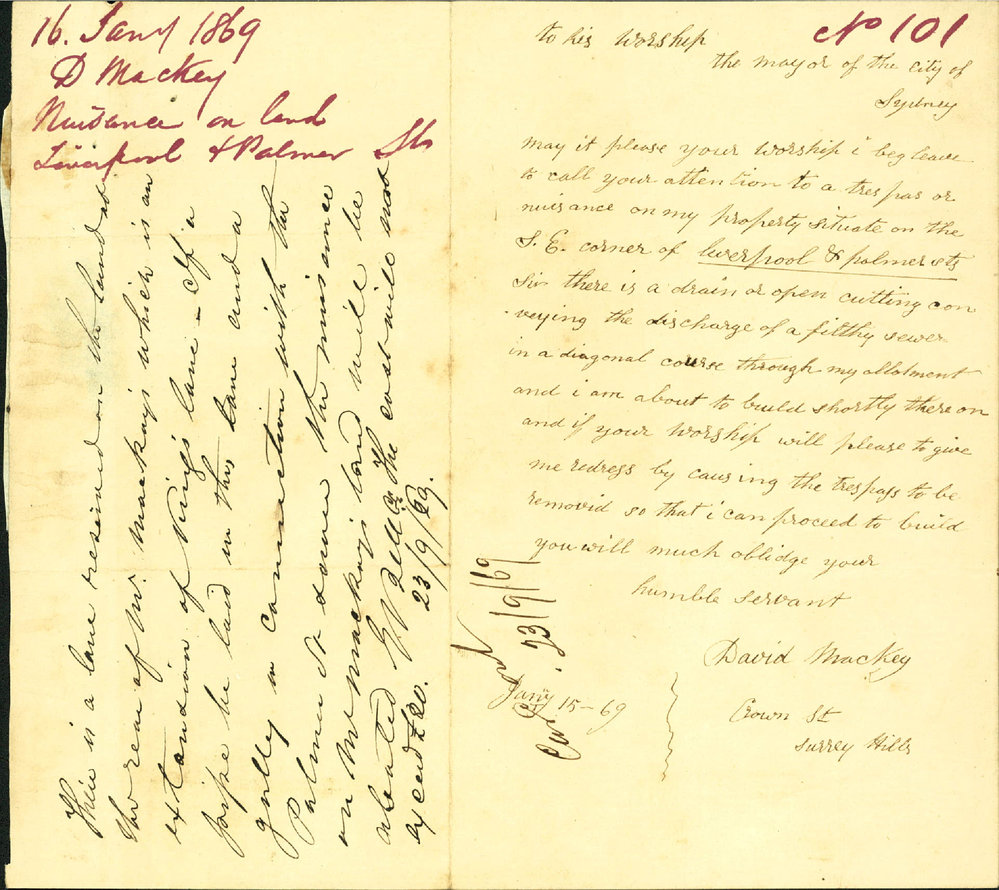 16. Jany 1869
D Mackey
Nuisance on land
Liverpool & Palmer Sts
There is a lane reserved on the land at
the rear of Mr. Mackays which is an
extension of Kings lane - If a
pipe be laid in this lane and a
gully in connection with the
Palmer St sewer the nuisance
on Mr Mackays land will be
abated The cost will not
exceed £20. 23/9/69.
No 101
to his worship
the mayor of the city of
Sydney
may it please your worship i beg leave
to call your attention to a trespas or
nuisance on my property situate on the
S. E. corner of liverpool & palmer sts
Sir there is a drain or open cutting con
veying the discharge of a filthy sewer
in a diagonal course through my allotment
and i am about to build shortly there on
and if your worship will please to give
me redress by causing the trespass to be
removid so that i can proceed to build
you will much oblidge your
humble servant
David Mackey
Crown St
Surrey Hills
Jany 15-69
23/9/69